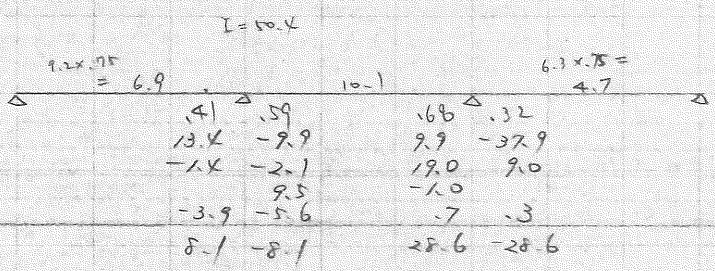 I = 50.4
9.2 x .75 = 6.9
10.1
6.3 x .75 = 4.7
.41 .59 .68 .32
13.4 -9.9 9.9 -37.9
-1.4 -2.1 19.0 9.0
9.5 -1.0
-3.9 -5.6 .7 .3
8.1 -8.1 28.6 -28.6